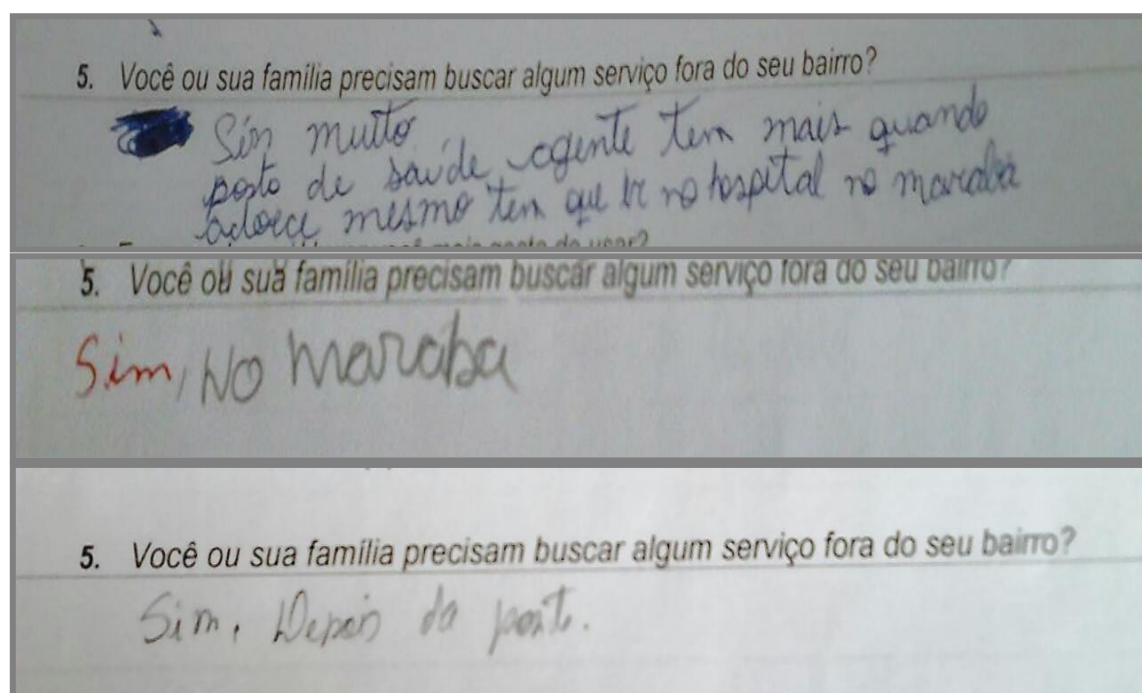 5. Você ou sua família precisam buscar algum serviço fora do seu bairro?
Sin muito
posto de saúde, agente tem mais quando
adoece mesmo tem que ir no hospital no maraba
mais gosto de usar?
5. Você ou sua família precisam buscar algum serviço fora do seu bairro?
Sim, No maraba
5. Você ou sua família precisam buscar algum serviço fora do seu bairro?
Sim, Depois da pont.